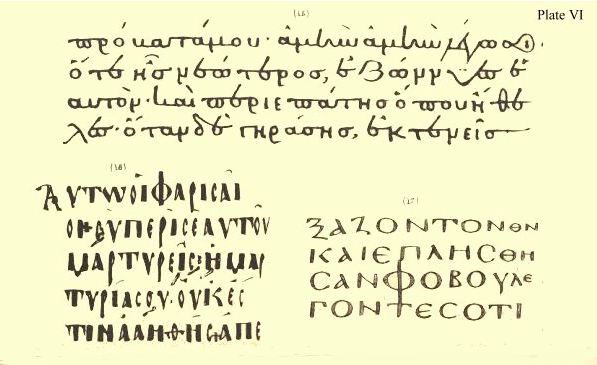 Plate VI
(15)
πρόβατά μου· ἀμὴν ἀμὴν λέγω σοι·
ὅτε ἦς νεώτερος, ἐζώννυες ἑ
αυτὸν· καὶ περιεπάτης ὅπου ἤθε
λες· ὅταν δὲ γηράσης, ἐκτενεῖς
(16)
ΑΥΤΩ ΟΙ ΦΑΡΙCΑΙ
ΟΙ· CΥ ΠΕΡΙ CΕΑΥΤΟΥ
ΜΑΡΤΥΡΕΙC· Η ΜΑΡ
ΤΥΡΙΑ CΟΥ· ΟΥΚ ΕC
ΤΙΝ ΑΛΗΘΗC· ΑΠΕ
(17)
ΞΑΖΟΝ ΤΟΝ ΘΝ
ΚΑΙ ΕΠΛΗCΘΗ
CΑΝ ΦΟΒΟΥ ΛΕ
ΓΟΝΤΕC ΟΤΙ